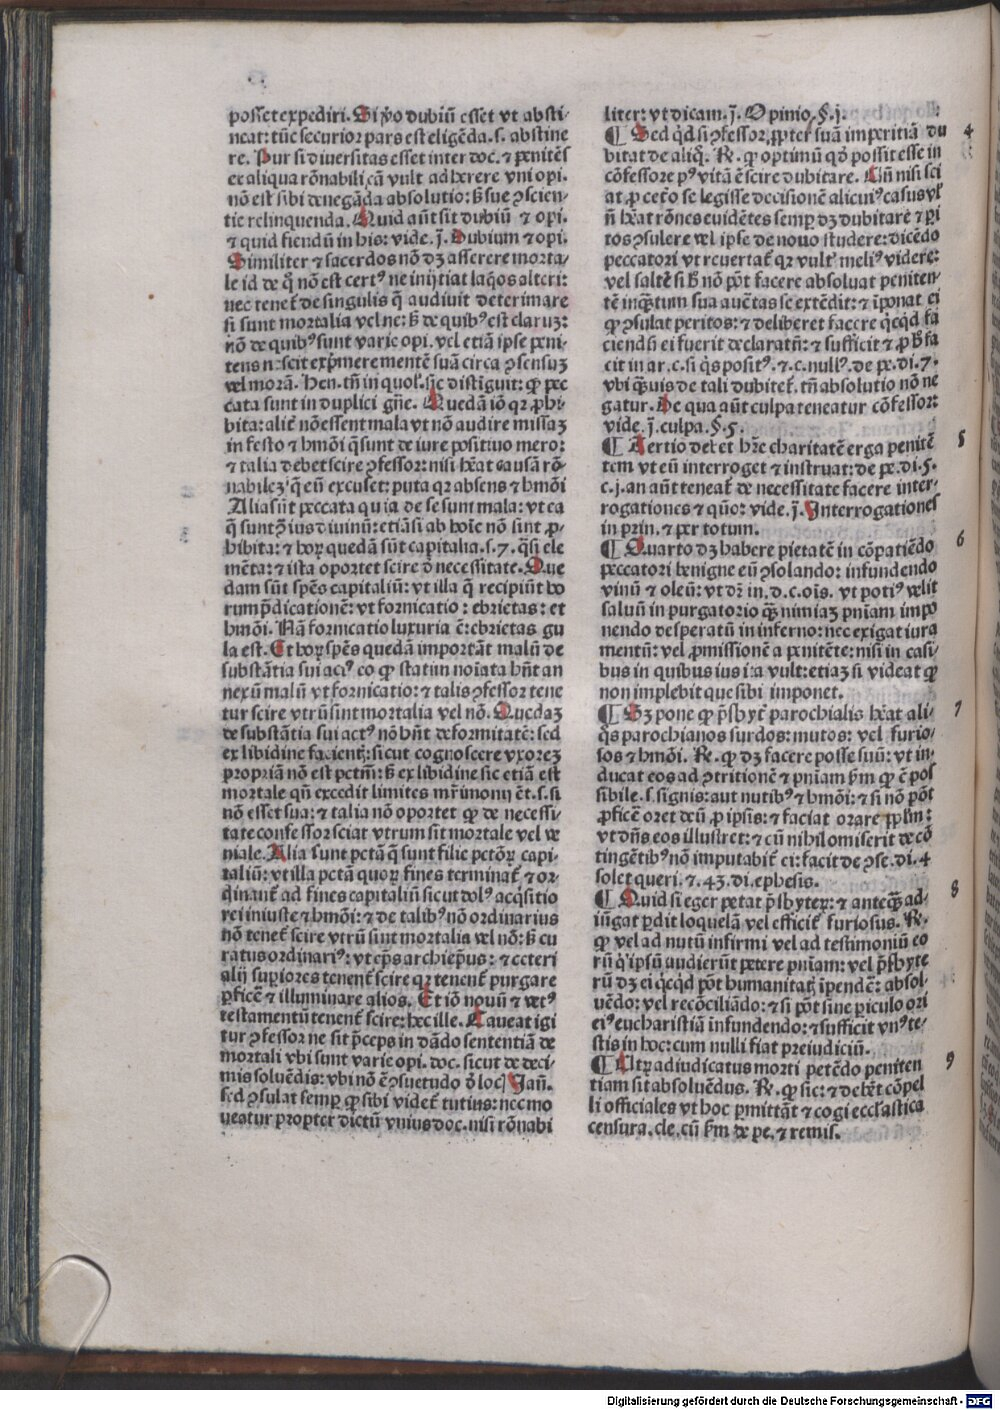 posset expediri. Si ꝟo dubiū esset vt absti-
neat: tūc securior pars est eligēda. s. abstine
re. Dur si diuersitas esset inter doc. ⁊ penitēs
ex aliqua rōnabili cā vult adherere vni opi.
nō est sibi deneganda absolutio: sꝫ sue ↄscien-
tie relinquenda. Quid aūt sit dubiū ⁊ opi.
⁊ quid fiendū in his: vide. j̄. Dubium ⁊ opi.
Similiter ⁊ sacerdos nō dꝫ asserere morta-
le id de q̊ nō est certꝰ ne inijtiat laqͦs alteri:
nec tenet̄ de singulis q̄ audiuit determinare
si sunt mortalia vel ne: sꝫ de quibꝰ est claruꝫ:
nō de quibꝰ sunt varie opi. vel etiā ipse peni-
tens nescit exp̄mere mentē suā circa ↄsensuꝫ
vel morā. Hen. tn̄ in quol. sic distīguit: ꝙ pec
cata sunt in duplici gn̄e. Quedā iō qꝛ ꝓhi-
bita: alit̄ nō essent mala vt nō audire missaꝫ
in festo ⁊ hmōi q̄ sunt de iure positiuo mero:
⁊ talia debet scire ↄfessor: nisi hēat causā rō-
nabileꝫ q̄ eū excuset: puta qꝛ absens ⁊ hmōi
Alia sūt peccata quia de se sunt mala: vt ea
q̄ sunt ↄ ius diuinū: etiā si ab hoīe nō sint ꝓ-
hibita: ⁊ hoꝝ quedā sūt capitalia. s. 7. q̄si ele
mēta: ⁊ ista oportet scire d̄ necessitate. Que
dam sūt spēs capitaliū: vt illa q̄ recipiūt ho
rum p̄dicationē: vt fornicatio: ebrietas: et
hmōi. Nā fornicatio luxuria ē: ebrietas gu
la est. Et hoꝝ spēs quedā importāt malū de
substātia sui actꝰ eo ꝙ statim noīata hn̄t an
nexū malū vt fornicatio: ⁊ talis ↄfessor tene
tur scire vtrū sint mortalia vel nō. Quedaꝫ
de substātia sui actꝰ nō hn̄t deformitatē: sed
ex libidine facientꝭ: sicut cognoscere vxoreꝫ
propriā nō est pctm̄: sꝫ ex libidine sic etiā est
mortale qn̄ excedit limites mr̄imonij ēt. s. si
nō esset sua: ⁊ talia nō oportet ꝙ de necessi-
tate confessor sciat vtrum sit mortale vel ve
niale. Alia sunt pctā q̄ sunt filie pctōꝝ capi-
taliū: vt illa pctā quoꝝ fines terminat̄ ⁊ or-
dinant̄ ad fines capitaliū sicut dolꝰ acq̄sitio
rei iniuste ⁊ hmōi: ⁊ de talibꝰ nō ordinarius
nō tenet̄ scire vtrū sint mortalia vel nō: sꝫ cu
ratus ordinariꝰ: vt ep̄s archiep̄us: ⁊ ceteri
alij supiores tenent̄ scire qꝛ tenent̄ purgare
ꝑficē ⁊ illuminare alios. Et iō nouū ⁊ vetꝰ
testamentū tenent̄ scire: hec ille. Caueat igi
tur ↄfessor ne sit p̄ceps in dādo sententiā de
mortali vbi sunt varie opi. doc. sicut de deci-
mis soluēdis: vbi nō ē ↄsuetudo ꝟ locꝭ Jan̄.
sed ↄsulat semꝑ ꝙ sibi videt̄ tutius: nec mo
ueatur propter dictū vnius doc. nisi rōnabi
liter: vt dicam. j̄. Opinio. §. j.
¶ Sed qͥd si ↄfessor ꝓpter suā imperitiā du 4
bitat de aliqͦ. R̄. ꝙ optimū qͦd possit esse in
cōfessore pꝰ vitā ē scire dubitare. Cū nisi sci
at ꝓ certo se legisse decisionē alicuiꝰ casus vl̓
n̄ hēat rōnes euidētes semꝑ dꝫ dubitare ⁊ ꝑi
tos ↄsulere vel ipse de nouo studere: dicēdo
peccatori vt reuertat̄ qꝛ vult meliꝰ videre:
vel saltē si hͦ nō pōt facere absoluat peniten-
tē inqͣntum sua auctas se extēdit: ⁊ īponat ei
ꝙ ↄsulat peritos: ⁊ deliberet facere qͥcqͥd fa
ciendū ei fuerit declaratū: ⁊ sufficit ⁊ ꝓ hͦ fa
cit in ar. c. si q̄s positꝰ. ⁊ c. nullꝰ. de pe. di. 7.
vbi q̄uis de tali dubitet̄. tn̄ absolutio nō ne
gatur. De qua aūt culpa teneatur cōfessor:
vide. j̄. culpa. §. 5.
¶ Tertio debet hr̄e charitatē erga penitē 5
tem vt eū interroget ⁊ instruat: de pe. di. 5.
c. j. an aūt teneat̄ de necessitate facere inter-
rogationes ⁊ quō: vide. j̄. Interrogationes
in prin. ⁊ per totum.
¶ Quarto dꝫ habere pietatē in cōpatiēdo 6
peccatori benigne eū ↄsolando: infundendo
vinū ⁊ oleū: vt dr̄ in. d. c. oīs. vt potiꝰ velit
saluū in purgatorio q̄ꝫ nimiaꝫ pniam impo
nendo desperatū in inferno: nec exigat iura
mentū: vel ꝓmissionē a penitēte: nisi in casi-
bus in quibus ius ita vult: etiaꝫ si videat ꝙ
non implebit que sibi imponet.
¶ Sꝫ pone ꝙ p̄sbyt̄ parochialis hēat ali- 7
q̄s parochianos surdos: mutos: vel furio-
sos ⁊ hmōi. R̄. ꝙ dꝫ facere posse suū: vt in-
ducat eos ad ↄtritionē ⁊ pniam ẜm ꝙ ē pos
sibile. s. signis: aut nutibꝰ ⁊ hmōi: ⁊ si nō pōt
ꝓficē oret deū ꝓ ipsis: ⁊ faciat orare ppl̓m:
vt dn̄s eos illustret: ⁊ cū nihil omiserit de cō
tingētibꝰ nō imputabit̄ ei: facit de ↄse. di. 4
solet queri. ⁊. 43. di. ephesis.
¶ Quid si eger petat p̄sbyteꝝ: ⁊ anteqͣꝫ ad- 8
iūgat ꝑdit loquelā vel efficit̄ furiosus. R̄.
ꝙ vel ad nutū infirmi vel ad testimoniū eo
rū qͥ ipsū audierūt petere pniam: vel p̄sbyte
rū dꝫ ei qͥcqͥd pōt humanitatꝭ īpendē: absol-
uēdo: vel recōciliādo: ⁊ si pōt sine ꝑiculo ori
eiꝰ eucharistiā infundendo: ⁊ sufficit vnꝰ te-
stis in hoc: cum nulli fiat preiudiciū.
¶ Utꝝ adiudicatus morti petēdo peniten 9
tiam sit absoluēdus. R̄. ꝙ sic: ⁊ debēt cōpel
li officiales vt hoc ꝑmittāt ⁊ cogi eccl̓astica
censura. cle. cū ẜm de pe. ⁊ remis.
Digitalisierung gefördert durch die Deutsche Forschungsgemeinschaft - DFG